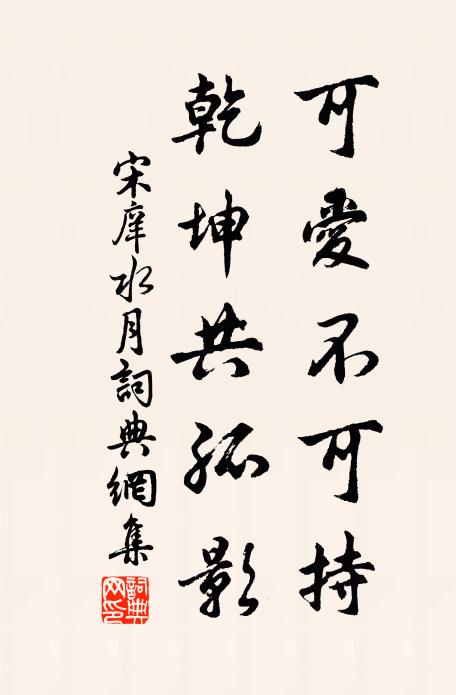 可愛不可持
乾坤共孤影
宋庠水月詞典網集
詞典网印